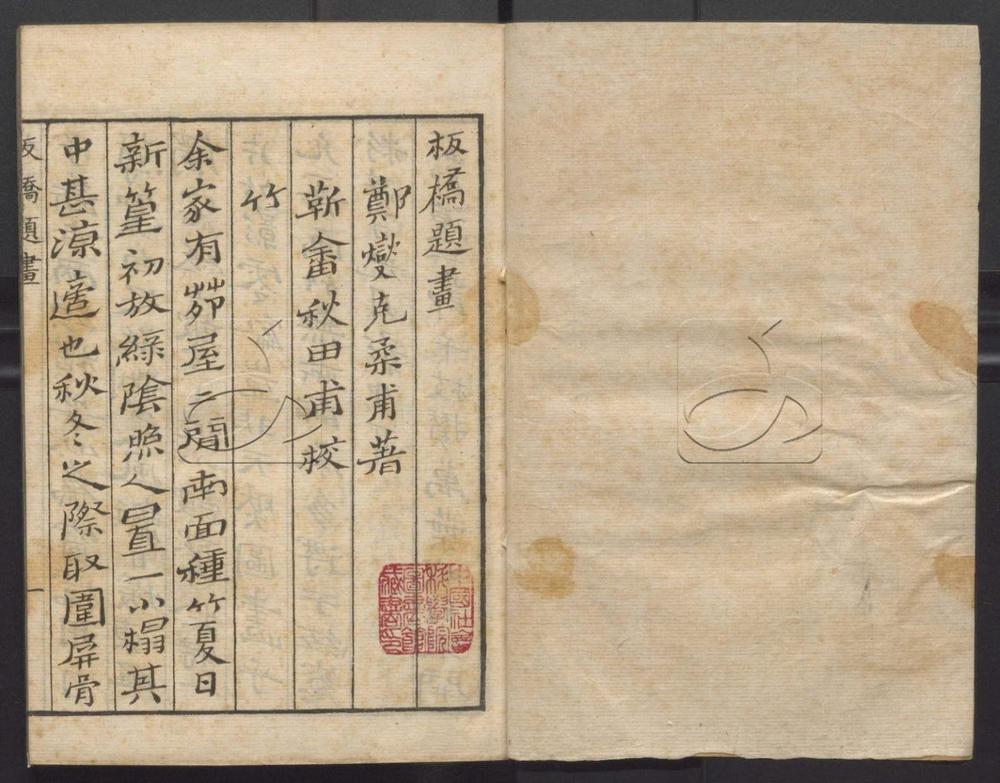 板橋題畫
鄭燮克柔甫著
靳畬秋田甫校
竹
余家有茆屋二間南面種竹夏日
新篁初放綠陰照人置一小榻其
中甚涼適也秋冬之際取圍屏骨
板橋題畫
一